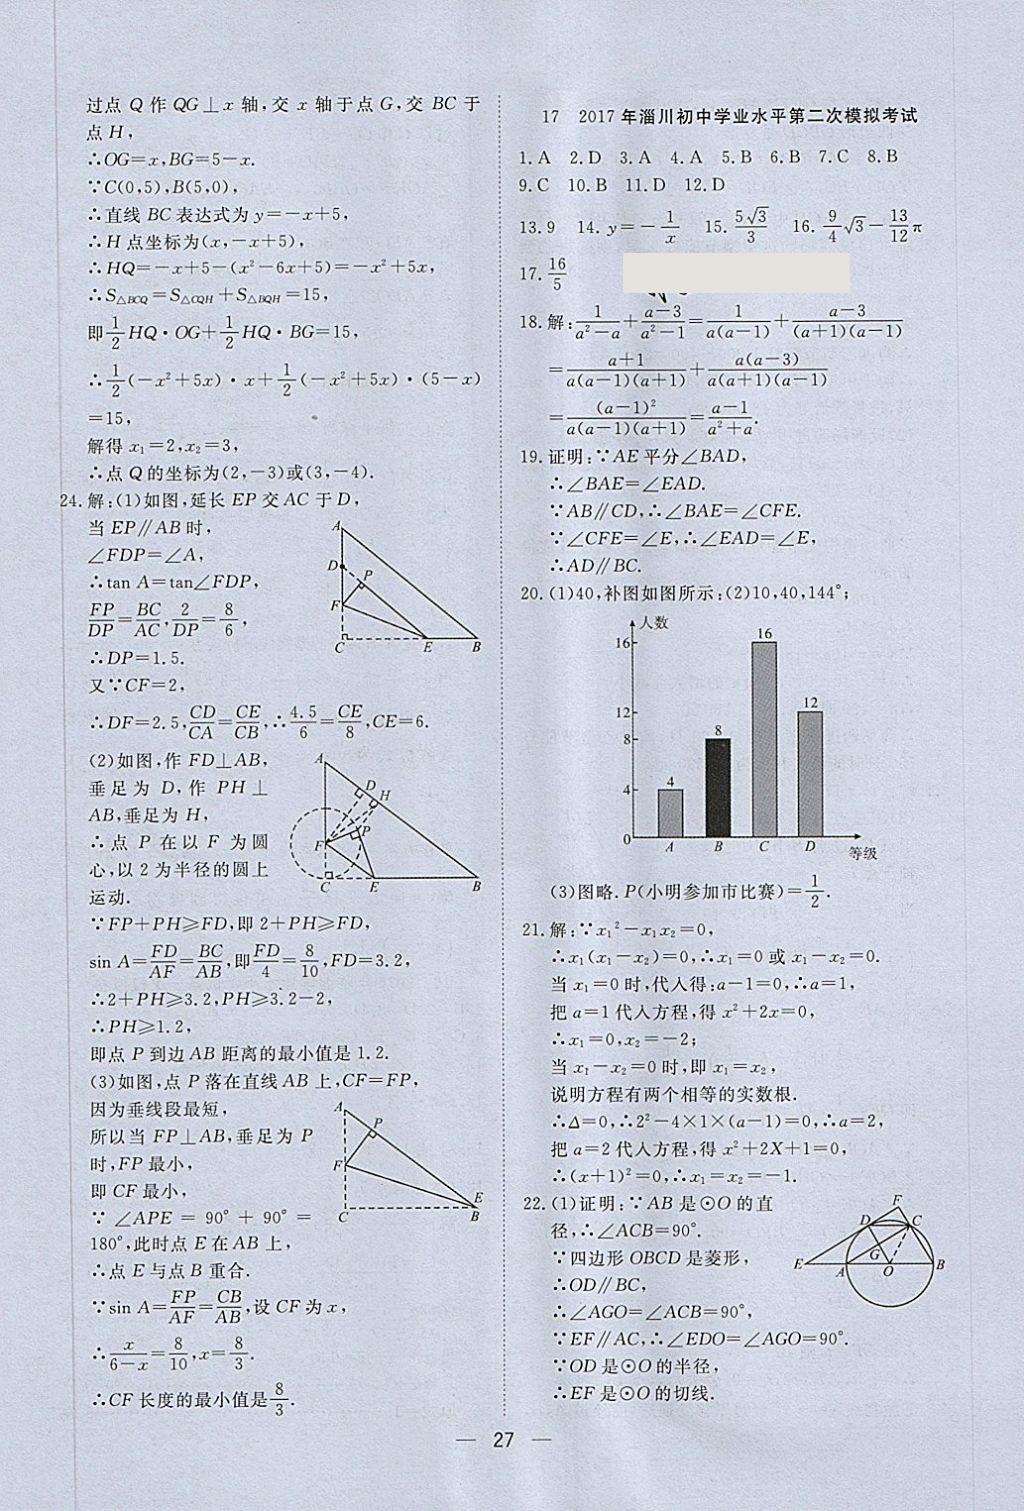 过点 Q 作 QG⊥x 轴,交 x 轴于点 G,交 BC 于
点 H,
∴OG=x,BG=5-x.
∵C(0,5),B(5,0),
∴直线 BC 表达式为 y=-x+5,
∴H 点坐标为(x,-x+5),
∴HQ=-x+5-(x²-6x+5)=-x²+5x,
∴S△BCQ=S△CQH+S△BQH=15,
即1/2 HQ·OG+1/2 HQ·BG=15,
∴1/2(-x²+5x)·x+1/2(-x²+5x)·(5-x)
=15,
解得 x₁=2,x₂=3,
∴点 Q 的坐标为(2,-3)或(3,-4).
24.解:(1)如图,延长 EP 交 AC 于 D,
当 EP∥AB 时,
∠FDP=∠A,
∴tan A=tan∠FDP,
FP/DP=BC/AC,2/DP=8/6,
∴DP=1.5.
又∵CF=2,
∴DF=2.5,CD/CA=CE/CB,∴4.5/6=CE/8,CE=6.
A
D
P
F
C
E
B
(2)如图,作 FD⊥AB,
垂足为 D,作 PH⊥
AB,垂足为 H,
∴点 P 在以 F 为圆
心,以 2 为半径的圆上
运动.
A
D
H
P
F
C
E
B
∵FP+PH≥FD,即 2+PH≥FD,
sin A=FD/AF=BC/AB,即FD/4=8/10,FD=3.2,
∴2+PH≥3.2,PH≥3.2-2,
∴PH≥1.2,
即点 P 到边 AB 距离的最小值是 1.2.
(3)如图,点 P 落在直线 AB 上,CF=FP,
因为垂线段最短,
所以当 FP⊥AB,垂足为 P
时,FP 最小,
即 CF 最小,
∵∠APE=90°+90°=
180°,此时点 E 在 AB 上,
∴点 E 与点 B 重合.
A
P
F
E
C
B
∵sin A=FP/AF=CB/AB,设 CF 为 x,
∴x/(6-x)=8/10,x=8/3.
∴CF 长度的最小值是8/3.
17 2017 年淄川初中学业水平第二次模拟考试
1.A 2.D 3.A 4.A 5.B 6.B 7.C 8.B
9.C 10.B 11.D 12.D
13.9 14.y=-1/x 15.5√3/3 16.9/4√3-13/12π
17.16/5
18.解:1/(a²-a)+(a-3)/(a²-1)=1/(a(a-1))+(a-3)/((a+1)(a-1))
=(a+1)/(a(a-1)(a+1))+a(a-3)/(a(a+1)(a-1))
=(a-1)²/(a(a-1)(a+1))=(a-1)/(a²+a).
19.证明:∵AE 平分∠BAD,
∴∠BAE=∠EAD.
∵AB∥CD,∴∠BAE=∠CFE.
∵∠CFE=∠E,∴∠EAD=∠E,
∴AD∥BC.
20.(1)40,补图如图所示:(2)10,40,144°;
人数
16
12
8
4
0
4
8
16
12
A B C D 等级
(3)图略.P(小明参加市比赛)=1/2.
21.解:∵x₁²-x₁x₂=0,
∴x₁(x₁-x₂)=0,∴x₁=0 或 x₁-x₂=0.
当 x₁=0 时,代入得:a-1=0,∴a=1,
把 a=1 代入方程,得 x²+2x=0,
∴x₁=0,x₂=-2;
当 x₁-x₂=0 时,即 x₁=x₂,
说明方程有两个相等的实数根.
∴Δ=0,∴2²-4×1×(a-1)=0,∴a=2,
把 a=2 代入方程,得 x²+2X+1=0,
∴(x+1)²=0,∴x₁=x₂=-1.
22.(1)证明:∵AB 是⊙O 的直
径,∴∠ACB=90°.
∵四边形 OBCD 是菱形,
∴OD∥BC,
∴∠AGO=∠ACB=90°,
∵EF∥AC,∴∠EDO=∠AGO=90°.
∵OD 是⊙O 的半径,
∴EF 是⊙O 的切线.
F
D
C
G
E
A
O
B
— 27 —